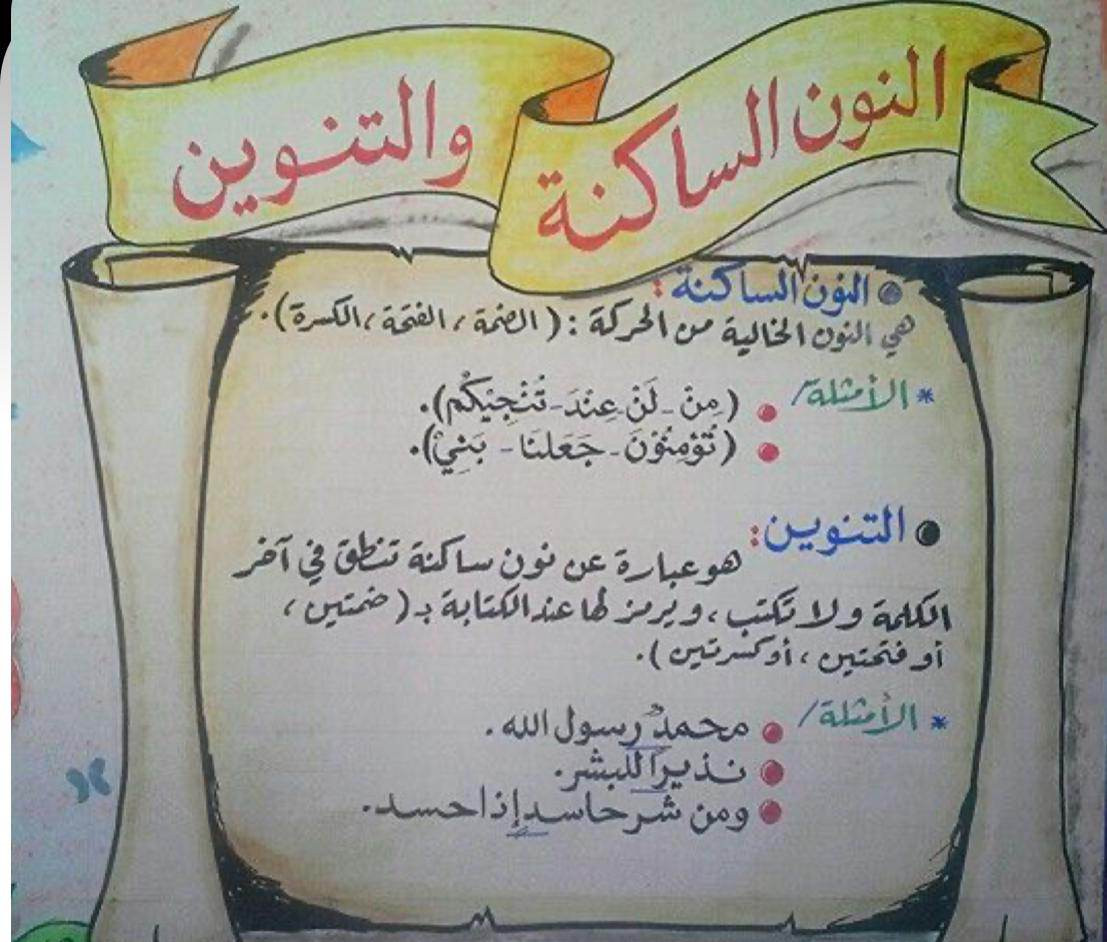 النون الساكنة والتنوين
النون الساكنة:
هي النون الخالية من الحركة : ( الضمة ، الفتحة ، الكسرة ) .
* الأمثلة /
( مِنْ - لَنْ - عِنْدَ - تُنْجِيْكُم ) .
( تُؤْمِنُوْنَ - جَعَلنَا - بَنِيْ ) .
التنوين:
هو عبارة عن نون ساكنة تنطق في آخر
الكلمة ولا تكتب ، ويرمز لها عند الكتابة بـ ( ضمتين ،
أو فتحتين ، أو كسرتين ) .
* الأمثلة /
محمدٌ رسول الله .
نذيراً للبشر .
ومن شر حاسدٍ إذا حسد .